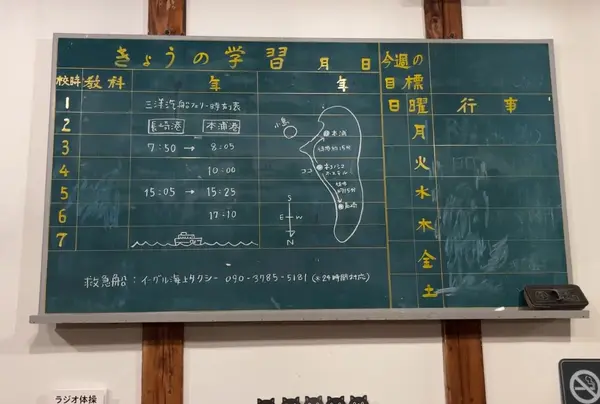 きょうの学習 月 日
校時 教科 年 年
1 三洋汽船フェリー時刻表
2 長崎港 本浦港
3 7:50 → 8:05
4 10:00
5 15:05 → 15:25
6 17:10
7
小島
本浦
徒歩約15分
ココ
ネコノシマ
ホステル
徒歩
約15分
長崎
S
E W
N
救急船:イーグル海上タクシー 090-3785-5181 (※24時間対応)
今週の
目標
日曜 行事
月
火
水
木
金
土
ラジオ体操